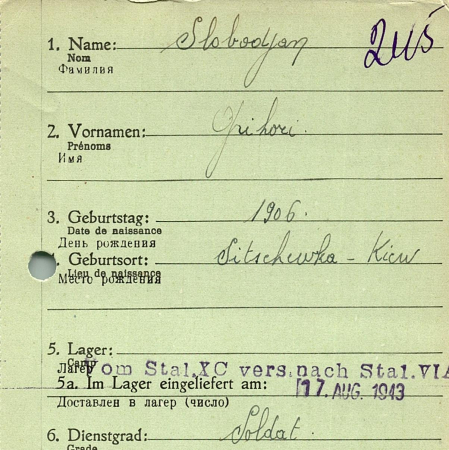 1. Name: Slobodjan
Nom
Фамилия
2. Vornamen:
Prénoms
Имя
3. Geburtstag: 1906.
Date de naissance
День рождения
4. Geburtsort: Sitschewka - Kiew
Lieu de naissance
Место рождения
5. Lager: Vom Stal.XC vers.nach Stal.VIA
Camp
Лагерь
5a. Im Lager eingeliefert am: 17. AUG. 1943
Доставлен в лагерь (число)
6. Dienstgrad: Soldat.
Grade